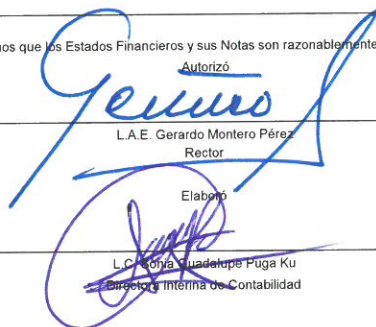 os que los Estados Financieros y sus Notas son razonablemente
Autorizó
L.A.E. Gerardo Montero Pérez
Rector
Elaboró
L.C. Sonia Guadalupe Puga Ku
Directora Interina de Contabilidad